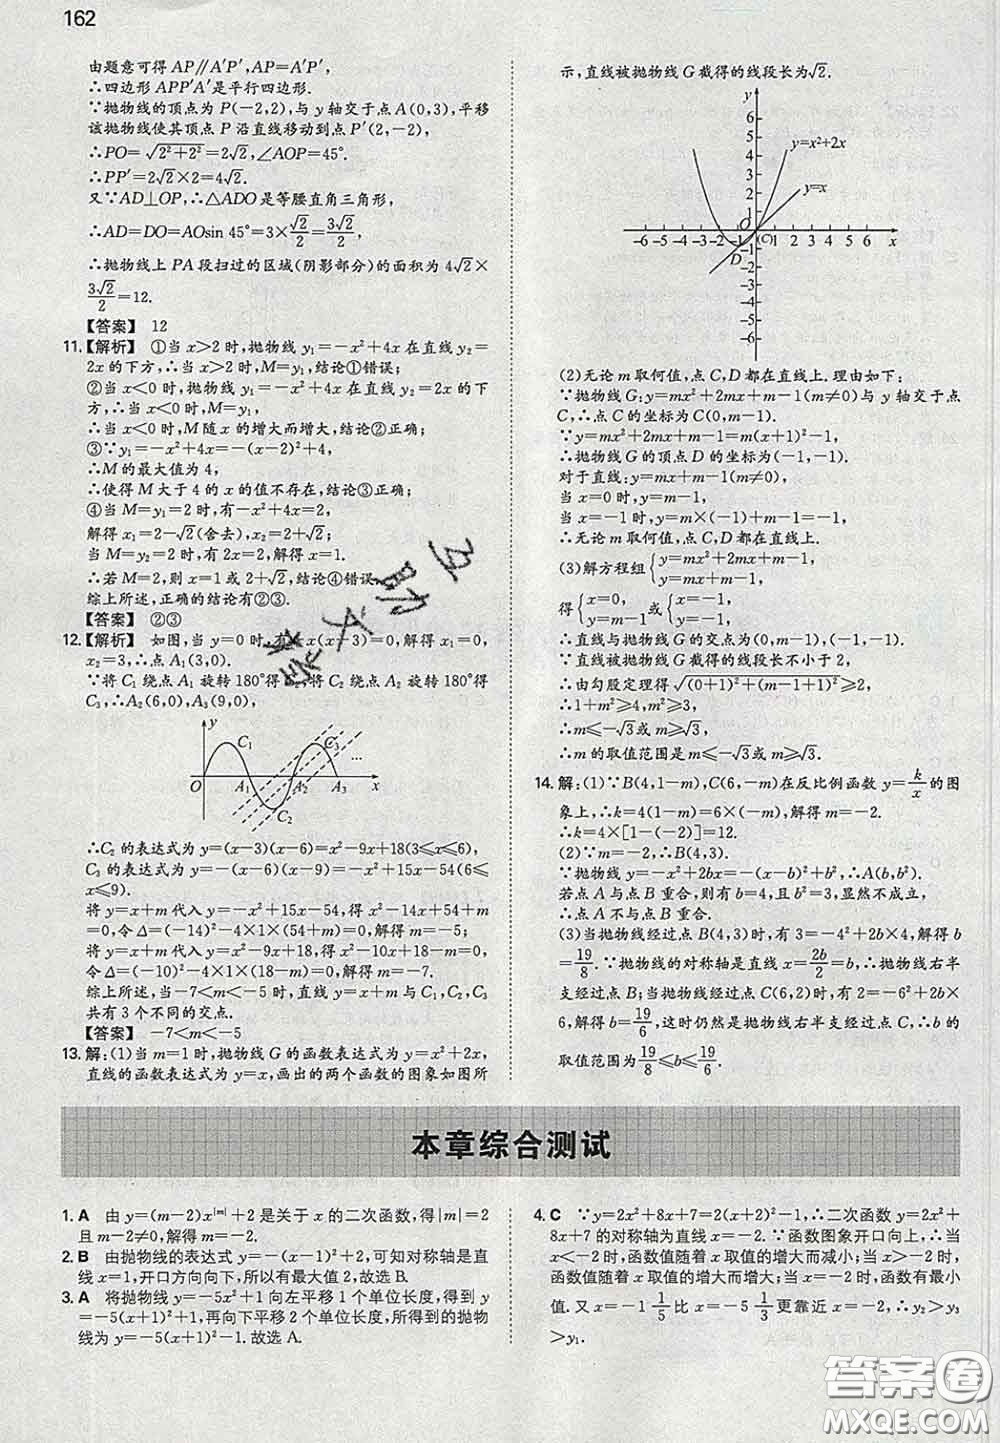 162
由题意可得 AP∥A′P′,AP=A′P′,
∴四边形 APP′A′是平行四边形.
∵抛物线的顶点为 P(-2,2),与 y 轴交于点 A(0,3),平移
该抛物线使其顶点 P 沿直线移动到点 P′(2,-2),
∴PO=√(2²+2²)=2√2,∠AOP=45°.
∴PP′=2√2×2=4√2.
又∵AD⊥OP,∴△ADO 是等腰直角三角形,
∴AD=DO=AOsin 45°=3×√2/2=3√2/2.
∴抛物线上 PA 段扫过的区域(阴影部分)的面积为 4√2×
3√2/2=12.
【答案】 12
11.【解析】 ①当 x>2 时,抛物线 y₁=-x²+4x 在直线 y₂=
2x 的下方,∴当 x>2 时,M=y₁,结论①错误;
②当 x<0 时,抛物线 y₁=-x²+4x 在直线 y₂=2x 的下
方,∴当 x<0 时,M=y₁,
∴当 x<0 时,M 随 x 的增大而增大,结论②正确;
③∵y₁=-x²+4x=-(x-2)²+4,
∴M 的最大值为 4,
∴使得 M 大于 4 的 x 的值不存在,结论③正确;
④当 M=y₁=2 时,有-x²+4x=2,
解得 x₁=2-√2(舍去),x₂=2+√2;
当 M=y₂=2 时,有 2x=2,解得 x=1.
∴若 M=2,则 x=1 或 2+√2,结论④错误.
综上所述,正确的结论有②③.
【答案】 ②③
12.【解析】 如图,当 y=0 时,有 x(x-3)=0,解得 x₁=0,
x₂=3,∴点 A₁(3,0).
∵将 C₁ 绕点 A₁ 旋转 180°得 C₂,将 C₂ 绕点 A₂ 旋转 180°得
C₃,∴A₂(6,0),A₃(9,0),
y
C₁
C₃
…
O
A₁
A₂
A₃
x
C₂
∴C₂ 的表达式为 y=(x-3)(x-6)=x²-9x+18(3≤x≤6),
C₃ 的表达式为 y=-(x-6)(x-9)=-x²+15x-54(6≤
x≤9).
将 y=x+m 代入 y=-x²+15x-54,得 x²-14x+54+m
=0,令Δ=(-14)²-4×1×(54+m)=0,解得 m=-5;
将 y=x+m 代入 y=x²-9x+18,得 x²-10x+18-m=0,
令Δ=(-10)²-4×1×(18-m)=0,解得 m=-7.
综上所述,当-7<m<-5 时,直线 y=x+m 与 C₁,C₂,C₃
共有 3 个不同的交点.
【答案】 -7<m<-5
13.解:(1)当 m=1 时,抛物线 G 的函数表达式为 y=x²+2x,
直线的函数表达式为 y=x,画出的两个函数的图象如图所
示,直线被抛物线 G 截得的线段长为√2.
y
6
5
4
3
2
1
y=x²+2x
y=x
O
(C)
D
-6 -5 -4 -3 -2 -1 1 2 3 4 5 6 x
-1
-2
-3
-4
-5
-6
(2)无论 m 取何值,点 C,D 都在直线上.理由如下:
∵抛物线 G:y=mx²+2mx+m-1(m≠0)与 y 轴交于点
C,∴点 C 的坐标为 C(0,m-1).
∵y=mx²+2mx+m-1=m(x+1)²-1,
∴抛物线 G 的顶点 D 的坐标为(-1,-1).
对于直线:y=mx+m-1(m≠0),
当 x=0 时,y=m-1,
当 x=-1 时,y=m×(-1)+m-1=-1,
∴无论 m 取何值,点 C,D 都在直线上.
(3)解方程组{y=mx²+2mx+m-1, y=mx+m-1,
得{x=0, y=m-1 或{x=-1, y=-1,
∴直线与抛物线 G 的交点为(0,m-1),(-1,-1).
∵直线被抛物线 G 截得的线段长不小于 2,
∴由勾股定理得√((0+1)²+(m-1+1)²)≥2,
∴1+m²≥4,m²≥3,
∴m≤-√3或 m≥√3,
∴m 的取值范围是 m≤-√3或 m≥√3.
14.解:(1)∵B(4,1-m),C(6,-m)在反比例函数 y=k/x的图
象上,∴k=4(1-m)=6×(-m),解得 m=-2.
∴k=4×[1-(-2)]=12.
(2)∵m=-2,∴B(4,3).
∵抛物线 y=-x²+2bx=-(x-b)²+b²,∴A(b,b²).
若点 A 与点 B 重合,则有 b=4,且 b²=3,显然不成立,
∴点 A 不与点 B 重合.
(3)当抛物线经过点 B(4,3)时,有 3=-4²+2b×4,解得 b
=19/8.∵抛物线的对称轴是直线 x=2b/2=b,∴抛物线右半
支经过点 B;当抛物线经过点 C(6,2)时,有 2=-6²+2b×
6,解得 b=19/6,这时仍然是抛物线右半支经过点 C,∴b 的
取值范围为19/8≤b≤19/6.
本章综合测试
1. A 由 y=(m-2)x^|m|+2 是关于 x 的二次函数,得|m|=2
且 m-2≠0,解得 m=-2.
2. B 由抛物线的表达式 y=-(x-1)²+2,可知对称轴是直
线 x=1,开口方向向下,所以有最大值 2,故选 B.
3. A 将抛物线 y=-5x²+1 向左平移 1 个单位长度,得到 y
=-5(x+1)²+1,再向下平移 2 个单位长度,所得到的抛物
线为 y=-5(x+1)²-1.故选 A.
4. C ∵y=2x²+8x+7=2(x+2)²-1,∴二次函数 y=2x²+
8x+7 的对称轴为直线 x=-2.∵函数图象开口向上,∴当
x<-2 时,函数值随着 x 取值的增大而减小;当 x>-2 时,
函数值随着 x 取值的增大而增大.∵当 x=-2 时,函数值最
小.又 x=-1 1/5 比 x=-5 1/3 更靠近 x=-2,∴y₂>y₃
>y₁.
答案圈
MXQE.COM